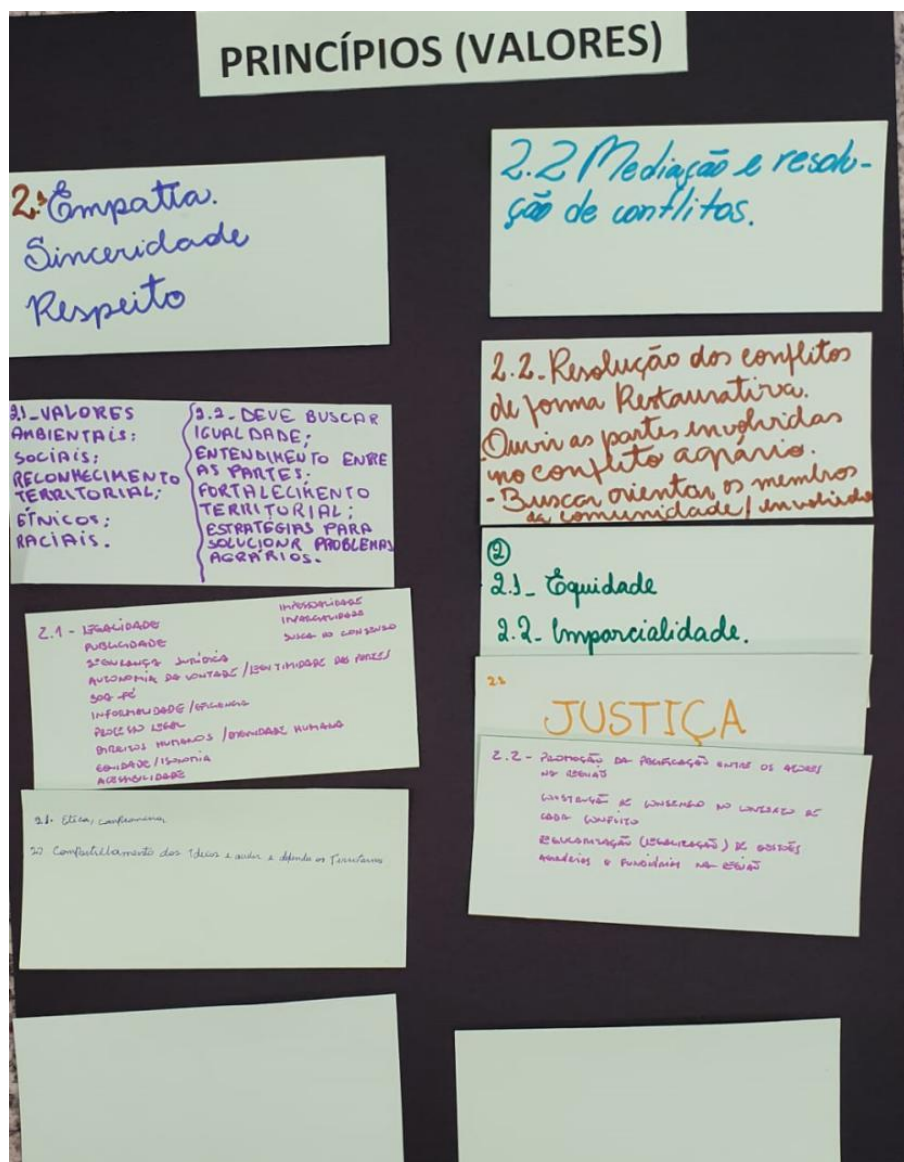 PRINCÍPIOS (VALORES)
2.1 Empatia.
Sinceridade
Respeito
2.1_VALORES
AMBIENTAIS;
SOCIAIS;
RECONHECIMENTO
TERRITORIAL;
ÉTNICOS;
RACIAIS.
2.2_DEVE BUSCAR
IGUALDADE;
ENTENDIMENTO ENTRE
AS PARTES;
FORTALECIMENTO
TERRITORIAL;
ESTRATÉGIAS PARA
SOLUCIONR PROBLEMAS
AGRÁRIOS.
2.1 - LEGALIDADE
PUBLICIDADE
SEGURANÇA JURÍDICA
AUTONOMIA DA VONTADE / LEGITIMIDADE DAS PARTES
BOA FÉ
INFORMALIDADE / EFICIÊNCIA
PROCESSO LEGAL
DIREITOS HUMANOS / DIGNIDADE HUMANA
EQUIDADE / ISONOMIA
ACESSIBILIDADE
IMPESSOALIDADE
IMPARCIALIDADE
BUSCA DO CONSENSO
2.1- Etica,
Compartilhamento das Ideias e e defender os Territorios
2.2 Mediação e resolu-
ção de conflitos.
2.2-Resolução dos conflitos
de forma Restaurativa.
Ouvir as partes envolvidas
no conflito agrário.
-Buscar orientar os membros
da comunidade/envolvido
②
2.1_ Equidade
2.2- Imparcialidade.
JUSTIÇA
2.2 - PROMOÇÃO DA PACIFICAÇÃO ENTRE OS ATORES
NA REGIÃO
CONSTRUÇÃO DE CONSENSO NO CONTEXTO DE
CADA CONFLITO
REGULARIZAÇÃO (LEGALIZAÇÃO) DE QUESTÕES
AGRÁRIAS E FUNDIÁRIAS NA REGIÃO